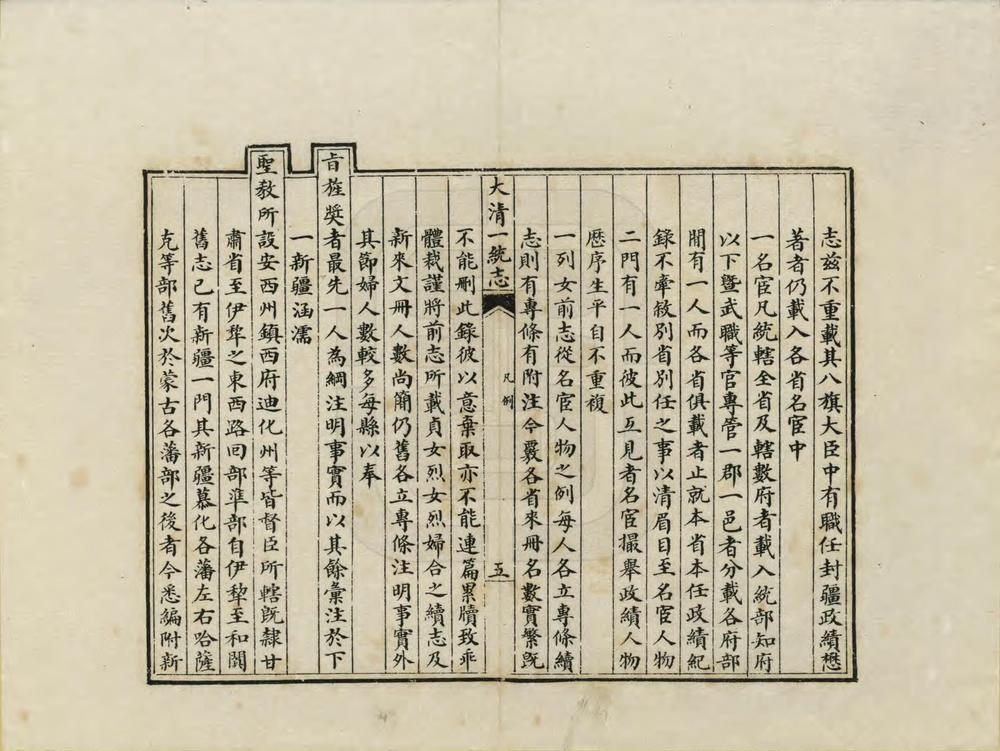 志茲不重載其八旗大臣中有職任封疆政績懋
著者仍載入各省名宦中
一名宦凡統轄全省及轄數府者載入統部知府
以下曁武職等官專管一郡一邑者分載各府部
閒有一人而各省俱載者止就本省本任政績紀
錄不牽敘別省別任之事以清眉目至名宦人物
二門有一人而彼此互見者名宦撮舉政績人物
歷序生平自不重複
一列女前志從名宦人物之例每人各立專條續
志則有專條有附注今覈各省來冊名數實繁旣
大清一統志
凡例
五
不能刪此錄彼以意棄取亦不能連篇累牘致乖
體裁謹將前志所載貞女烈女烈婦合之續志及
新來文冊人數尚簡仍舊各立專條注明事實外
其節婦人數較多每縣以奉
旨旌奬者最先一人為綱注明事實而以其餘彙注於下
一新疆涵濡
聖敎所設安西州鎮西府迪化州等皆督臣所轄旣隸甘
肅省至伊犂之東西路回部準部自伊犂至和闐
舊志已有新疆一門其新疆慕化各藩左右哈薩
克等部舊次於蒙古各藩部之後者今悉編附新